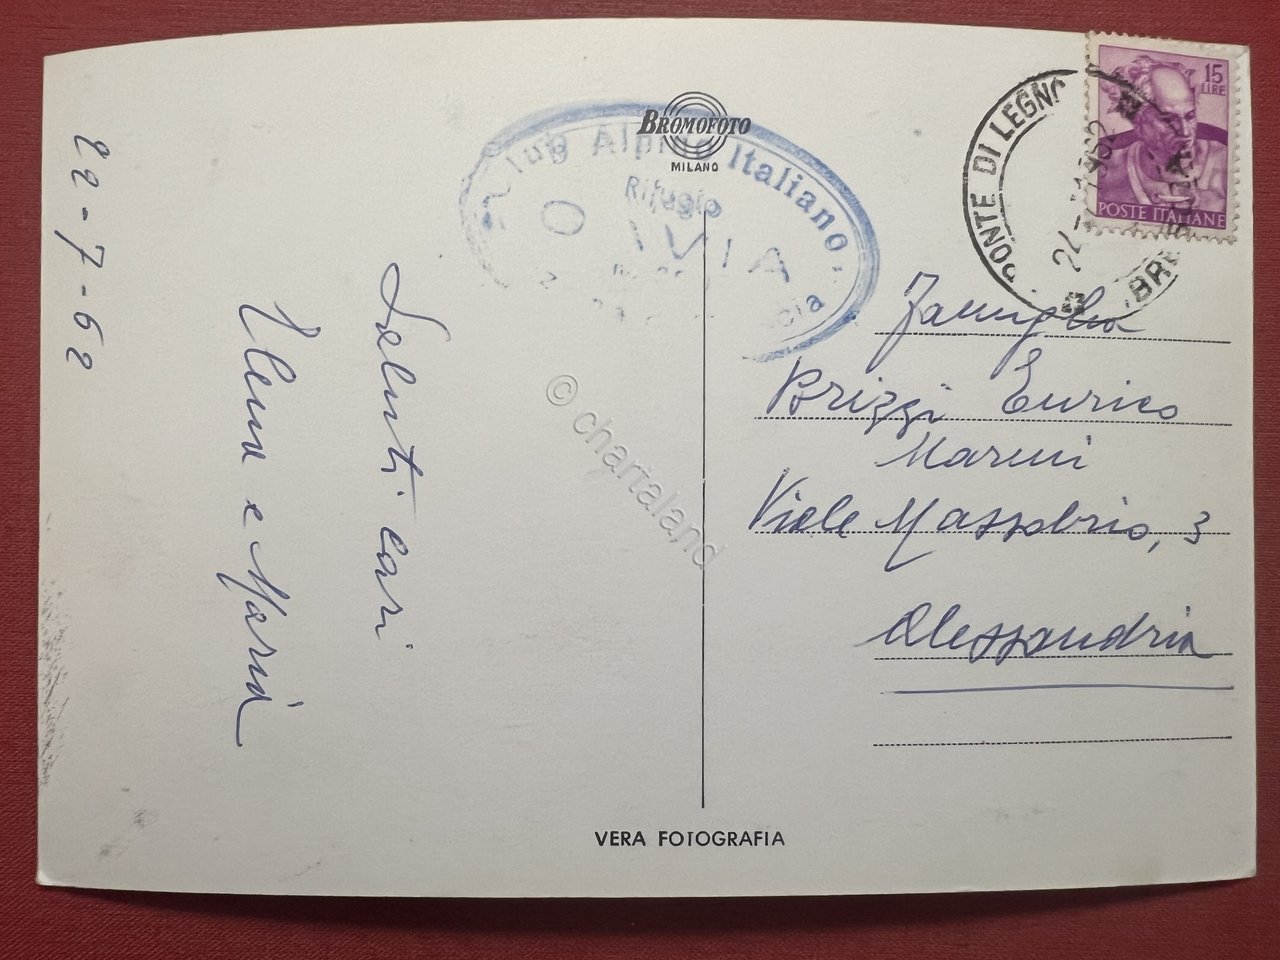 22-7-62
Saluti cari
Elena e Maria
BROMOFOTO
MILANO
Club Alpino Italiano
Rifugio
PONTE DI LEGNO
1962
15
LIRE
POSTE ITALIANE
Famiglia
Brizzi Enrico
Marini
Viale Massobrio, 3
Alessandria
© chartaland
VERA FOTOGRAFIA